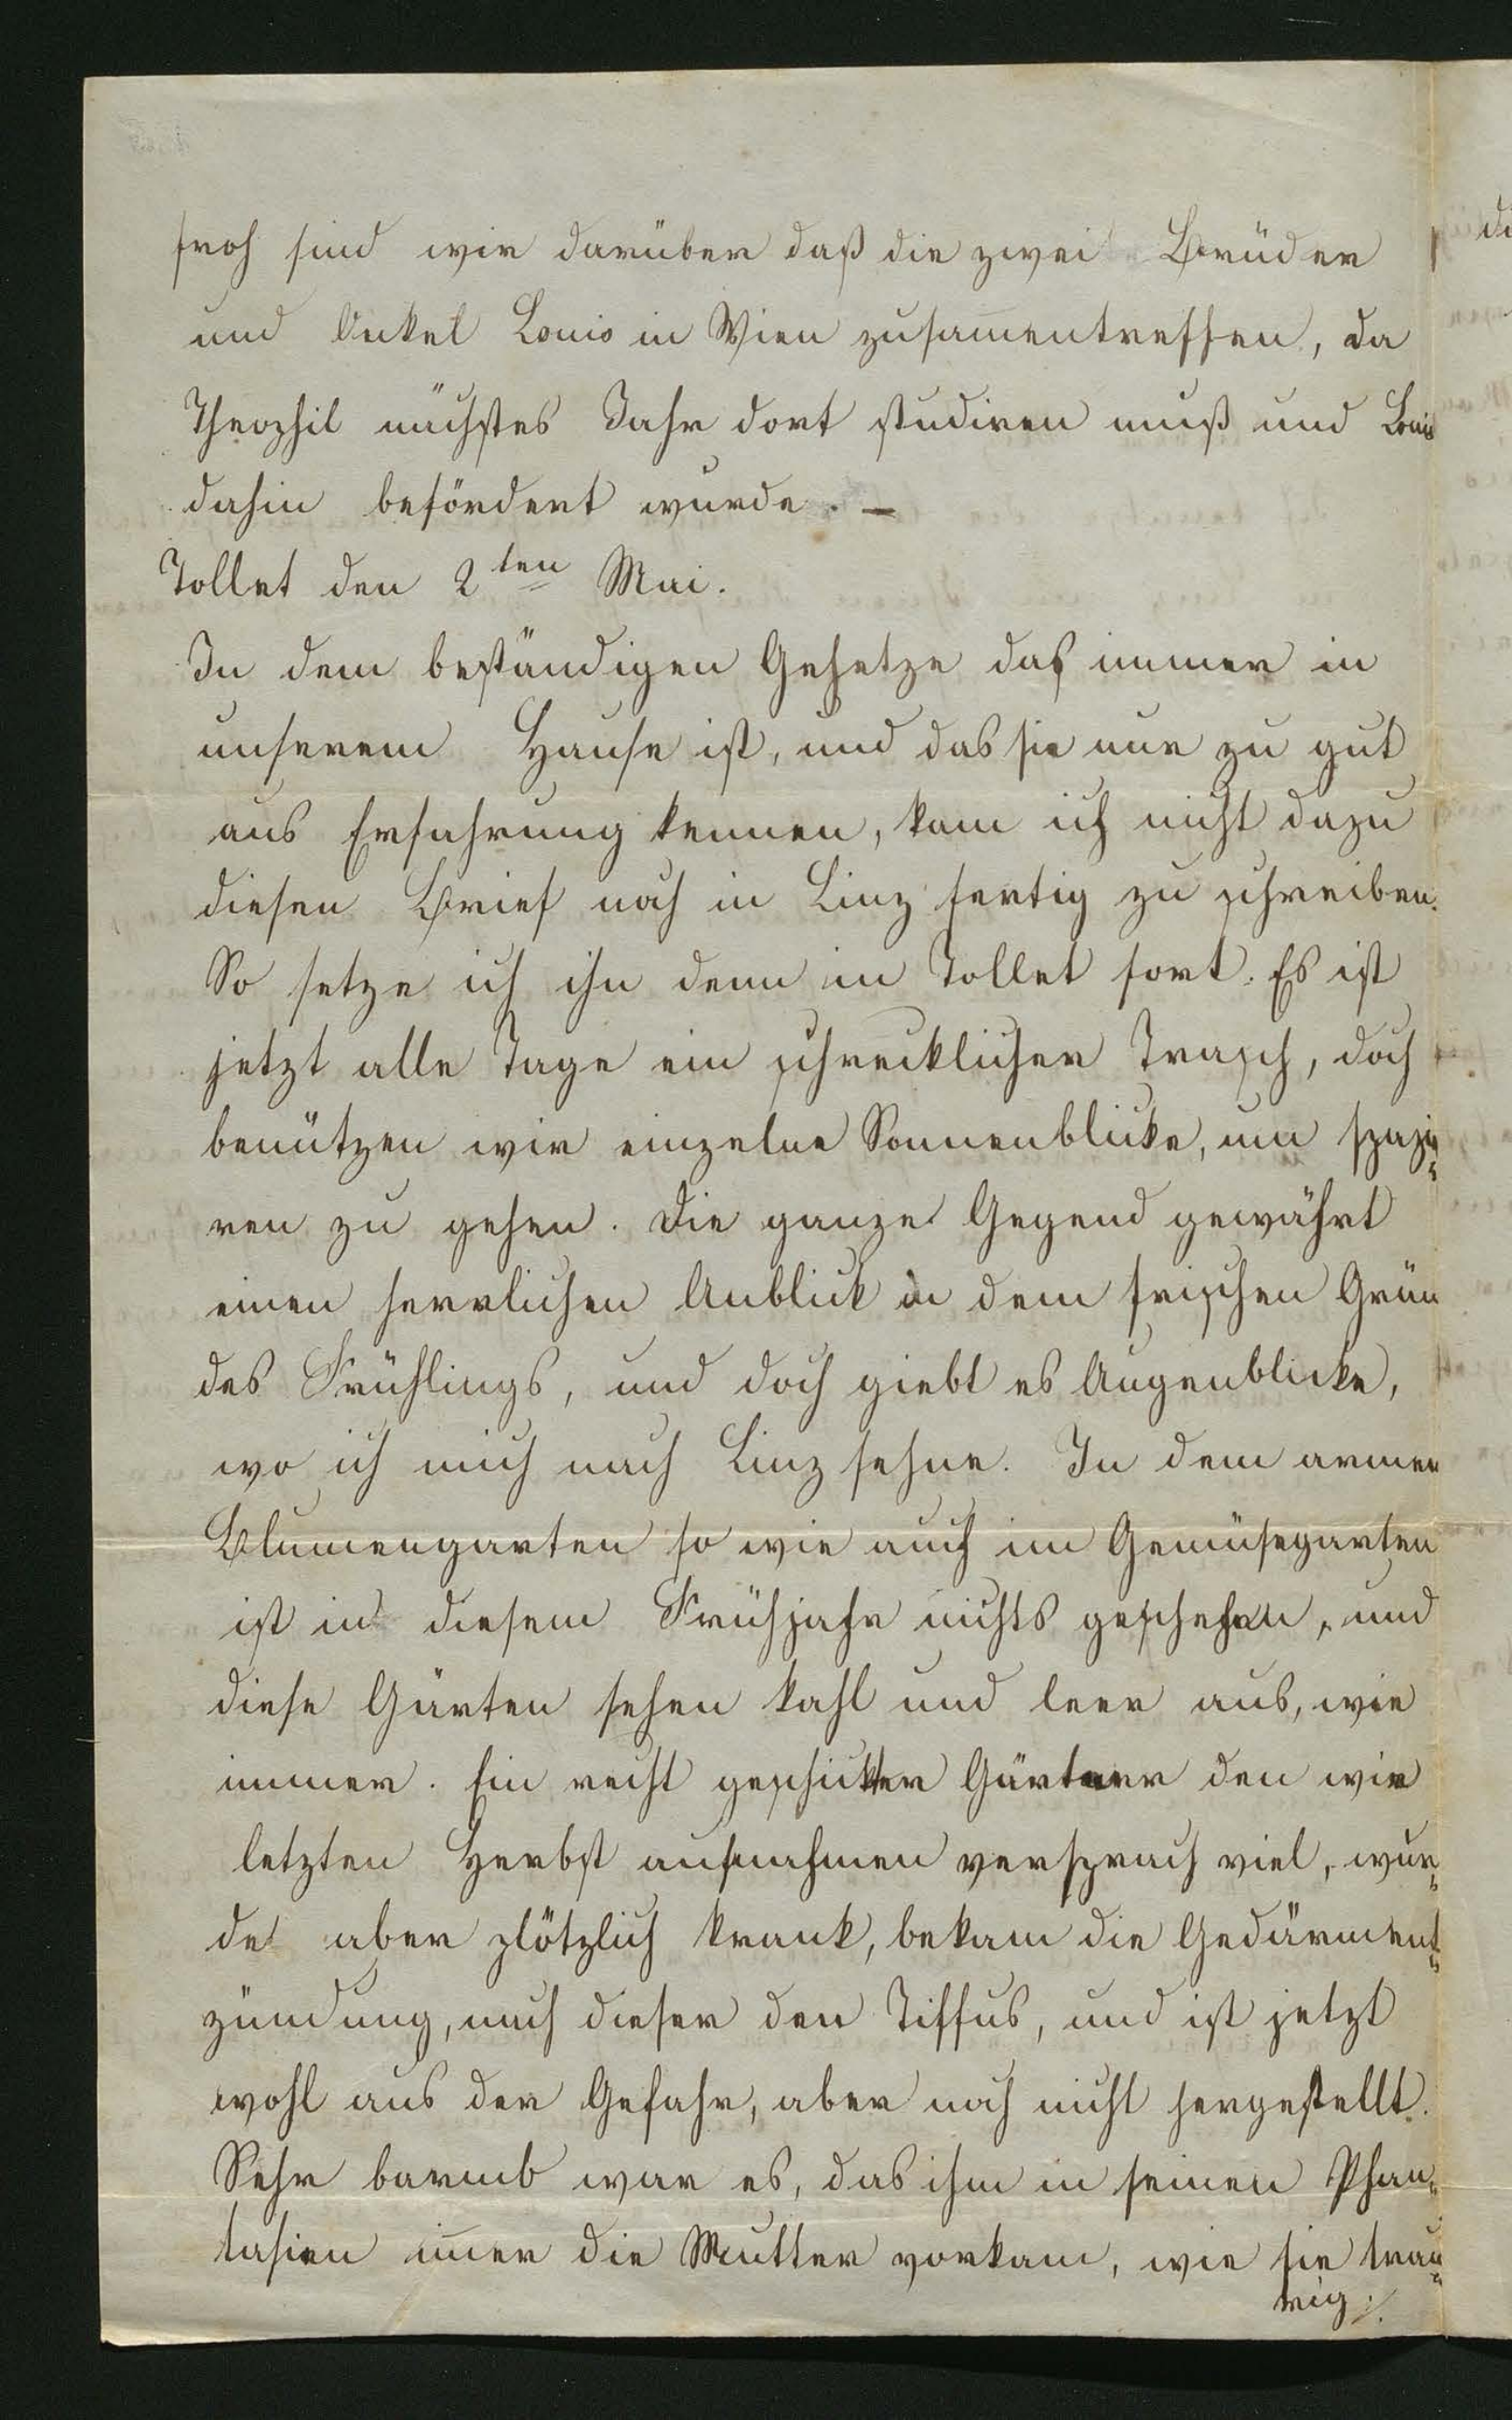 froh sind wir darüber daß die zwei Brüder
und Onkel Louis in Wien zusam̄entreffen, da
Theophil nächstes Jahr dort studiren muß und Louis
dahin befördert wurde. –
Tollet den 2ten Mai.
In dem beständigen Gehetze das immer in
unserem Hause ist, und das sie nur zu gut
aus Erfahrung kennen, kam ich nicht dazu
diesen Brief noch in Linz fertig zu schreiben.
So setze ich ihn denn in Tollet fort. Es ist
jetzt alle Tage ein schrecklicher Trasch, doch
benützen wir einzelne Sonnenblicke, um spazie
ren zu gehen. Die ganze Gegend gewährt
einen herrlichen Anblick in dem frischen Grün
des Frühlings, und doch giebt es Augenblicke,
wo ich mich nach Linz sehne. In dem armen
Blumengarten so wie auch im Gemüsegarten
ist in diesem Frühjahr nichts geschehen, und
diese Gärten sehen kahl und leer aus, wie
immer. Ein recht geschickter Gärtner den wir
letzten Herbst aufnahmen versprach viel, wur=
de aber plötzlich krank, bekam die Gedärment=
zündung, nach dieser den Tiffus, und ist jetzt
wohl aus der Gefahr, aber noch nicht hergestellt.
Sehr barmb war es, das ihm in seinen Phan=
tasien im̄er die Mutter vorkam, wie sie trau=
rig ./.